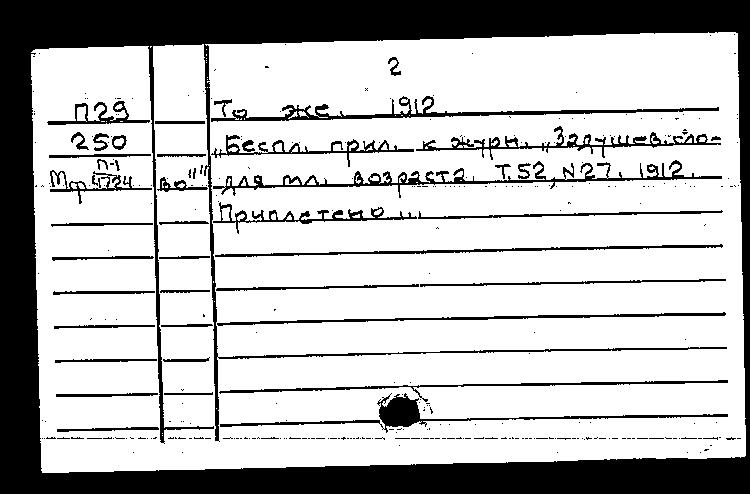 2
П29 То же. 1912.
250 „Беспл. прил. к журн. „Задушев. сло-
Мф П-1 4724 во"" для мл. возраста. Т.52, N27. 1912.
Приплетено...